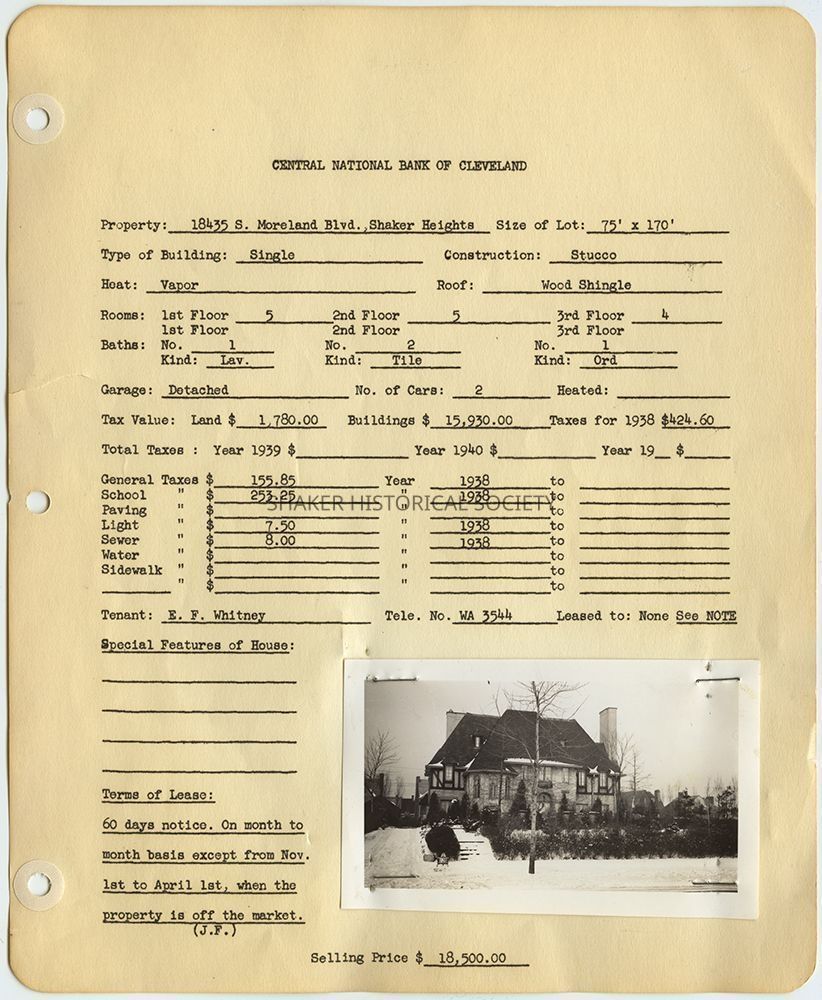 CENTRAL NATIONAL BANK OF CLEVELAND
Property: 18435 S. Moreland Blvd., Shaker Heights Size of Lot: 75' x 170'
Type of Building: Single Construction: Stucco
Heat: Vapor Roof: Wood Shingle
Rooms: 1st Floor 5 2nd Floor 5 3rd Floor 4
1st Floor 2nd Floor 3rd Floor
Baths: No. 1 No. 2 No. 1
Kind: Lav. Kind: Tile Kind: Ord
Garage: Detached No. of Cars: 2 Heated:
Tax Value: Land $ 1,780.00 Buildings $ 15,930.00 Taxes for 1938 $424.60
Total Taxes : Year 1939 $ Year 1940 $ Year 19__ $
General Taxes $ 155.85 Year 1938 to
School " $ 253.25 " 1938 to
SHAKER HISTORICAL SOCIETY
Paving " $ " to
Light " $ 7.50 " 1938 to
Sewer " $ 8.00 " 1938 to
Water " $ " to
Sidewalk " $ " to
" $ " to
Tenant: E. F. Whitney Tele. No. WA 3544 Leased to: None See NOTE
Special Features of House:
Terms of Lease:
60 days notice. On month to
month basis except from Nov.
1st to April 1st, when the
property is off the market.
(J.F.)
Selling Price $ 18,500.00